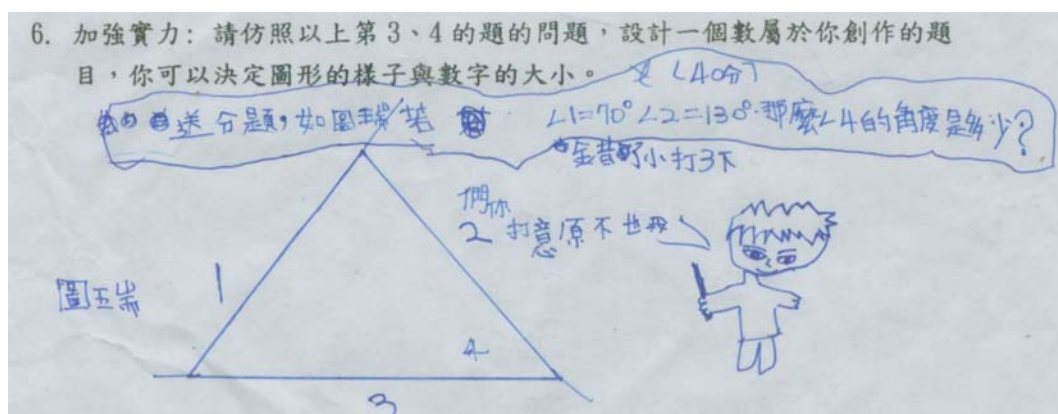 6. 加強實力：請仿照以上第3、4的題的問題，設計一個數屬於你創作的題
目，你可以決定圖形的樣子與數字的大小。
(40分)
送分題，如圖 若 ∠1=70° ∠2=130°那麼∠4的角度是多少?
小打3下
們你
2 打意原不也我
1
4
3